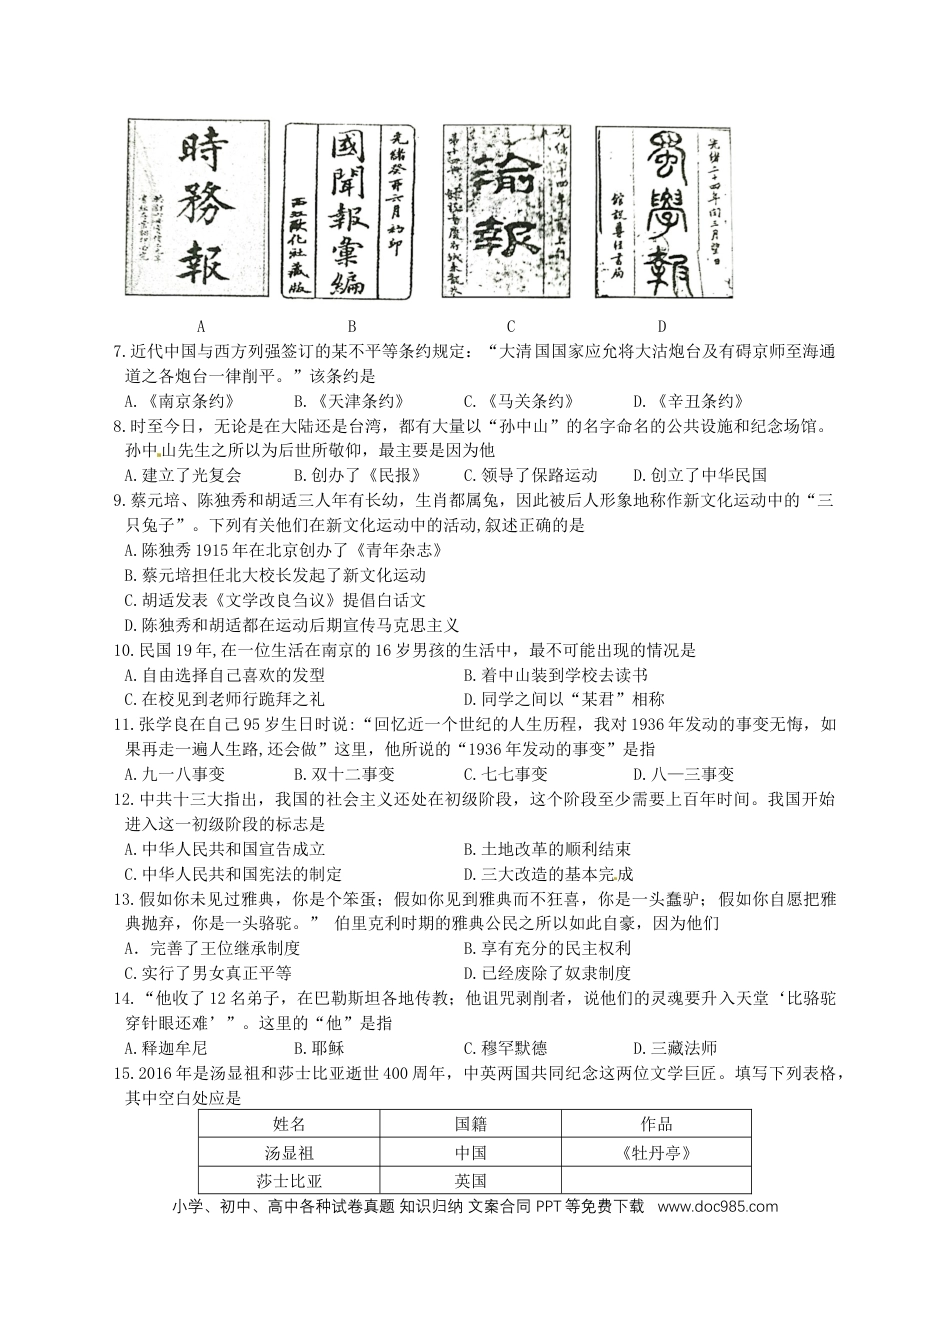 時務報
國聞報彙編
光緒癸卯六月初印
西江歐化社藏版
渝報
蜀學報
光緒二十四年閏三月望日
A B C D
7.近代中国与西方列强签订的某不平等条约规定：“大清国国家应允将大沽炮台及有碍京师至海通
道之各炮台一律削平。”该条约是
A.《南京条约》 B.《天津条约》 C.《马关条约》 D.《辛丑条约》
8.时至今日，无论是在大陆还是台湾，都有大量以“孙中山”的名字命名的公共设施和纪念场馆。
孙中山先生之所以为后世所敬仰，最主要是因为他
A.建立了光复会 B.创办了《民报》 C.领导了保路运动 D.创立了中华民国
9.蔡元培、陈独秀和胡适三人年有长幼，生肖都属兔，因此被后人形象地称作新文化运动中的“三
只兔子”。下列有关他们在新文化运动中的活动,叙述正确的是
A.陈独秀1915年在北京创办了《青年杂志》
B.蔡元培担任北大校长发起了新文化运动
C.胡适发表《文学改良刍议》提倡白话文
D.陈独秀和胡适都在运动后期宣传马克思主义
10.民国19年,在一位生活在南京的16岁男孩的生活中，最不可能出现的情况是
A.自由选择自己喜欢的发型 B.着中山装到学校去读书
C.在校见到老师行跪拜之礼 D.同学之间以“某君”相称
11.张学良在自己95岁生日时说:“回忆近一个世纪的人生历程，我对1936年发动的事变无悔，如
果再走一遍人生路,还会做”这里，他所说的“1936年发动的事变”是指
A.九一八事变 B.双十二事变 C.七七事变 D.八—三事变
12.中共十三大指出，我国的社会主义还处在初级阶段，这个阶段至少需要上百年时间。我国开始
进入这一初级阶段的标志是
A.中华人民共和国宣告成立 B.土地改革的顺利结束
C.中华人民共和国宪法的制定 D.三大改造的基本完成
13.假如你未见过雅典，你是个笨蛋；假如你见到雅典而不狂喜，你是一头蠢驴；假如你自愿把雅
典抛弃，你是一头骆驼。” 伯里克利时期的雅典公民之所以如此自豪，因为他们
A．完善了王位继承制度 B.享有充分的民主权利
C.实行了男女真正平等 D.已经废除了奴隶制度
14.“他收了12名弟子，在巴勒斯坦各地传教；他诅咒剥削者，说他们的灵魂要升入天堂‘比骆驼
穿针眼还难’”。这里的“他”是指
A.释迦牟尼 B.耶稣 C.穆罕默德 D.三藏法师
15.2016年是汤显祖和莎士比亚逝世400周年，中英两国共同纪念这两位文学巨匠。填写下列表格，
其中空白处应是
姓名 国籍 作品
汤显祖 中国 《牡丹亭》
莎士比亚 英国
小学、初中、高中各种试卷真题 知识归纳 文案合同 PPT等免费下载 www.doc985.com